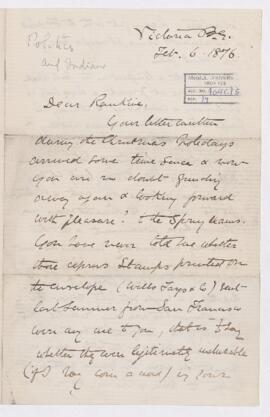 Victoria B.C.
Feb. 6. 1876
Politics
and Indians
Dear Rankine,
Your letter written
during the Christmas holidays
arrived some time since & now
you are no doubt grinding
away again & looking forward
with pleasure? to the Spring exams.
You have never told me whether
those express Stamps printed on
the envelope (Wells Fargo & Co) sent
last Summer from San Francisco
were any use to you, that is to say
whether they were legitimately unhookable
(if I may coin a word) in your